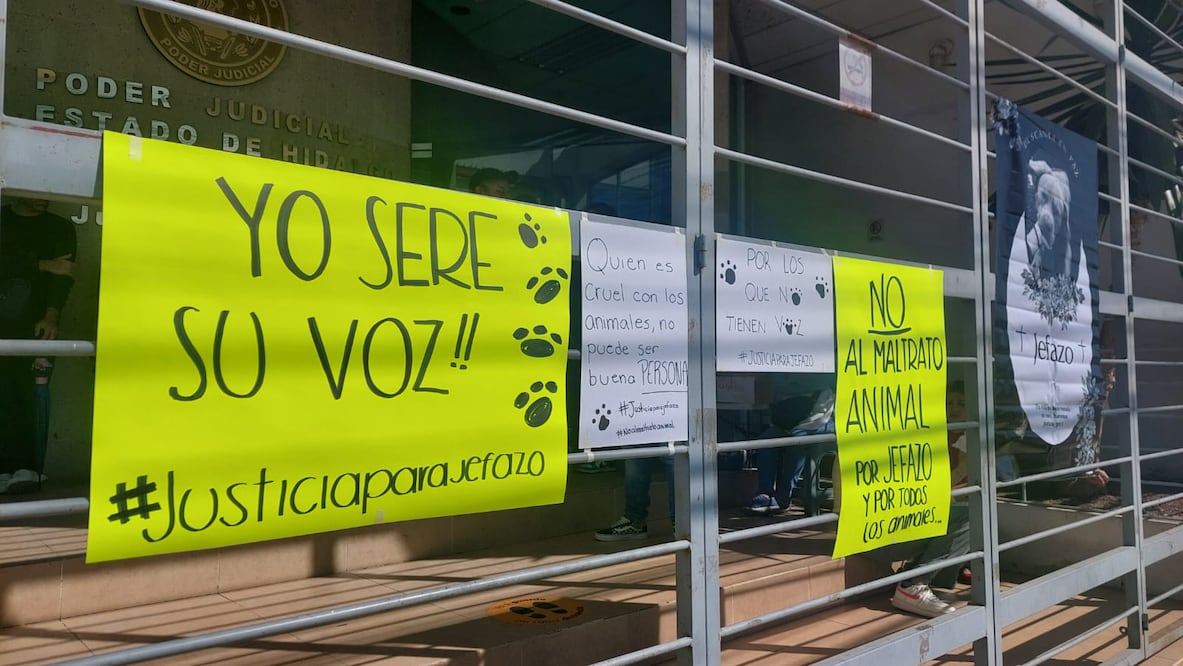 PODER JUDICIAL
PODER JUDICIAL
ESTADO DE HIDALGO
YO SERE
SU VOZ!!
#JusticiaparaJefazo
Quien es
Cruel con los
animales, no
puede ser
buena PERSONA
#Justiciaparajefazo
#Noalmaltratoanimal
POR LOS
QUE NO
TIENEN VOZ
#JUSTICIAPARAJEFAZO
NO
AL MALTRATO
ANIMAL
POR JEFAZO
Y POR TODOS
LOS animales...
DESCANSA EN PAZ
Jefazo